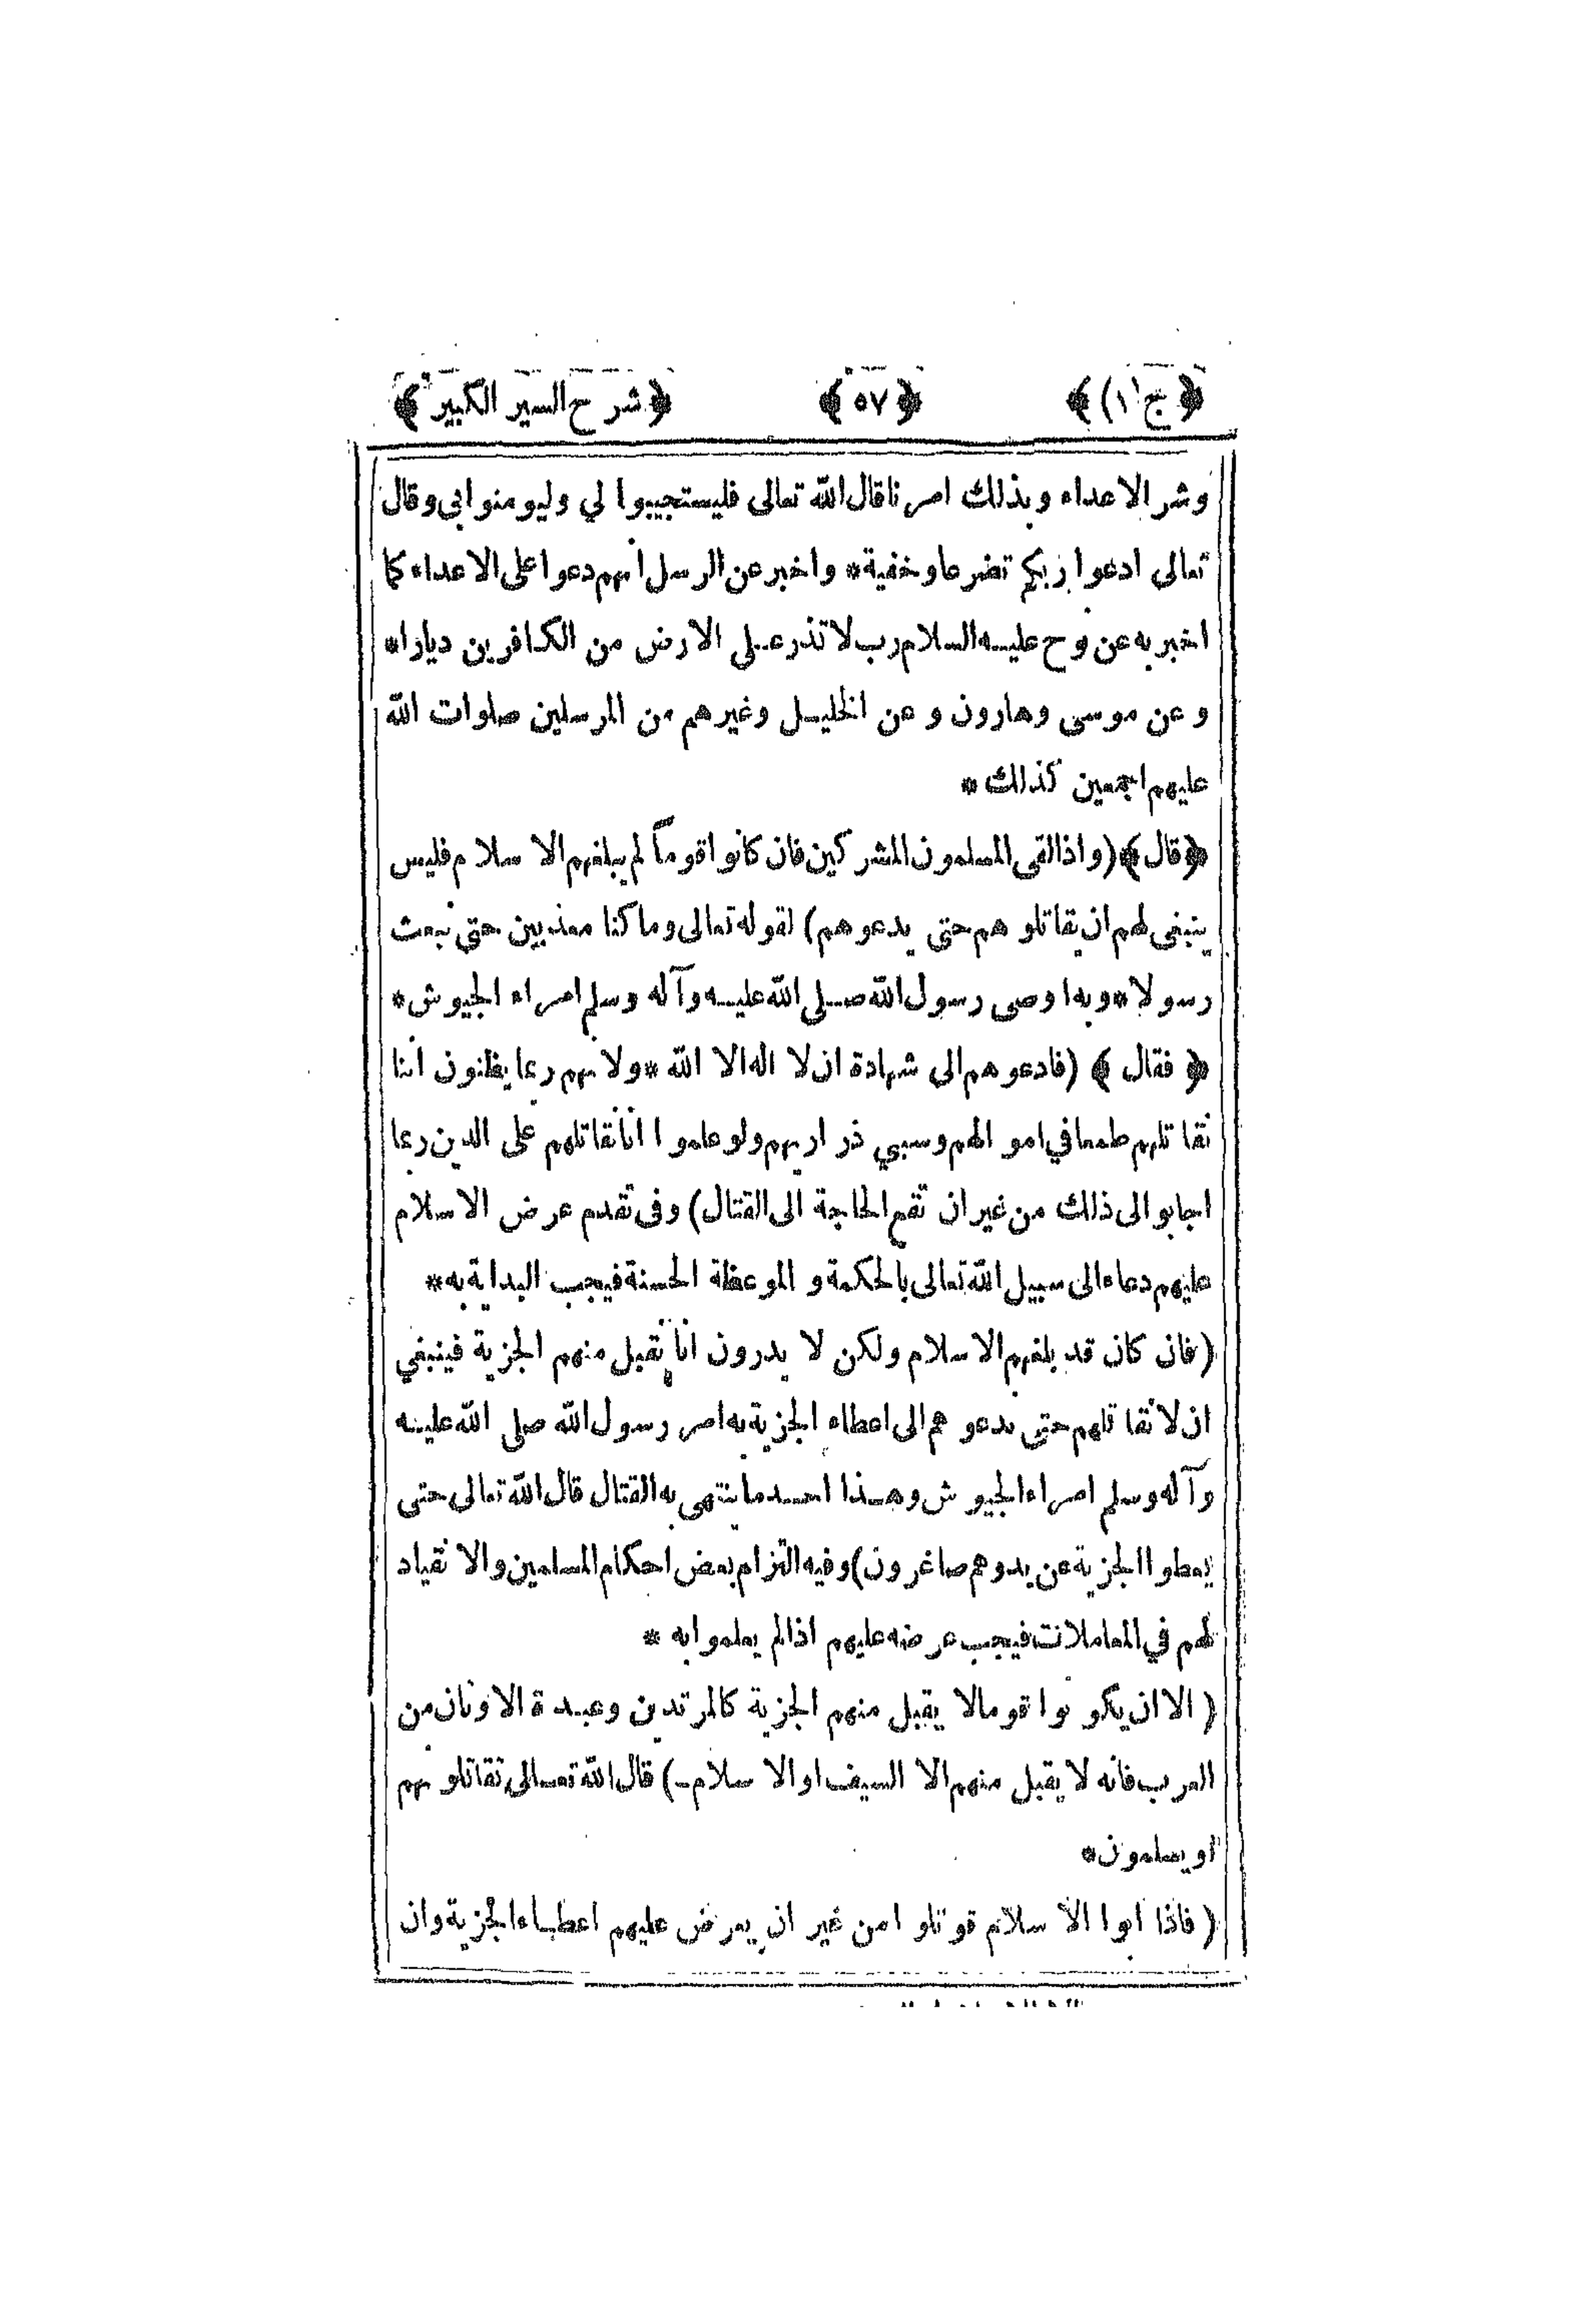 ﴿ج (١)﴾ ﴿٥٧﴾ ﴿شرح السير الكبير﴾
وشر الاعداء وبذلك امرنا قال الله تعالى فليستجيبوا لي وليومنوا بى وقال
تعالى ادعوا ربكم تضرعا وخفية* واخبر عن الرسل انهم دعوا على الاعداء كما
اخبر به عن نوح عليه السلام رب لا تذر على الارض من الكافرين ديارا*
وعن موسى وهارون وعن الخليل وغيرهم من المرسلين صلوات الله
عليهم اجمعين كذلك*
﴿قال﴾ (واذا لقى المسلمون المشركين فان كانوا قوماً لم يبلغهم الاسلام فليس
ينبغى لهم ان يقاتلوهم حتى يدعوهم) لقوله تعالى وما كنا معذبين حتى نبعث
رسولا* وبه اوصى رسول الله صلى الله عليه وآله وسلم امراء الجيوش*
﴿فقال﴾ (فادعوهم الى شهادة ان لا اله الا الله* ولانهم ربما يظنون اننا
نقاتلهم طمعا في اموالهم وسبي ذراريهم ولو علموا انا نقاتلهم على الدين ربما
اجابوا الى ذلك من غير ان تقع الحاجة الى القتال) وفى تقدم عرض الاسلام
عليهم دعاء الى سبيل الله تعالى بالحكمة والموعظة الحسنة فيجب البداية به*
(فان كان قد بلغهم الاسلام ولكن لا يدرون انا نقبل منهم الجزية فينبغي
ان لا نقاتلهم حتى ندعوهم الى اعطاء الجزية به امر رسول الله صلى الله عليه
وآله وسلم امراء الجيوش وهذا احد ما ينتهى به القتال قال الله تعالى حتى
يعطوا الجزية عن يد وهم صاغرون) وفيه التزام بعض احكام المسلمين والانقياد
لهم في المعاملات فيجب عرضه عليهم اذا لم يعلموا به*
(الا ان يكونوا قوما لا يقبل منهم الجزية كالمرتدين وعبدة الاوثان من
العرب فانه لا يقبل منهم الا السيف او الاسلام-) قال الله تعالى تقاتلونهم
او يسلمون*
(فاذا ابوا الاسلام قوتلوا من غير ان يعرض عليهم اعطاء الجزية وان